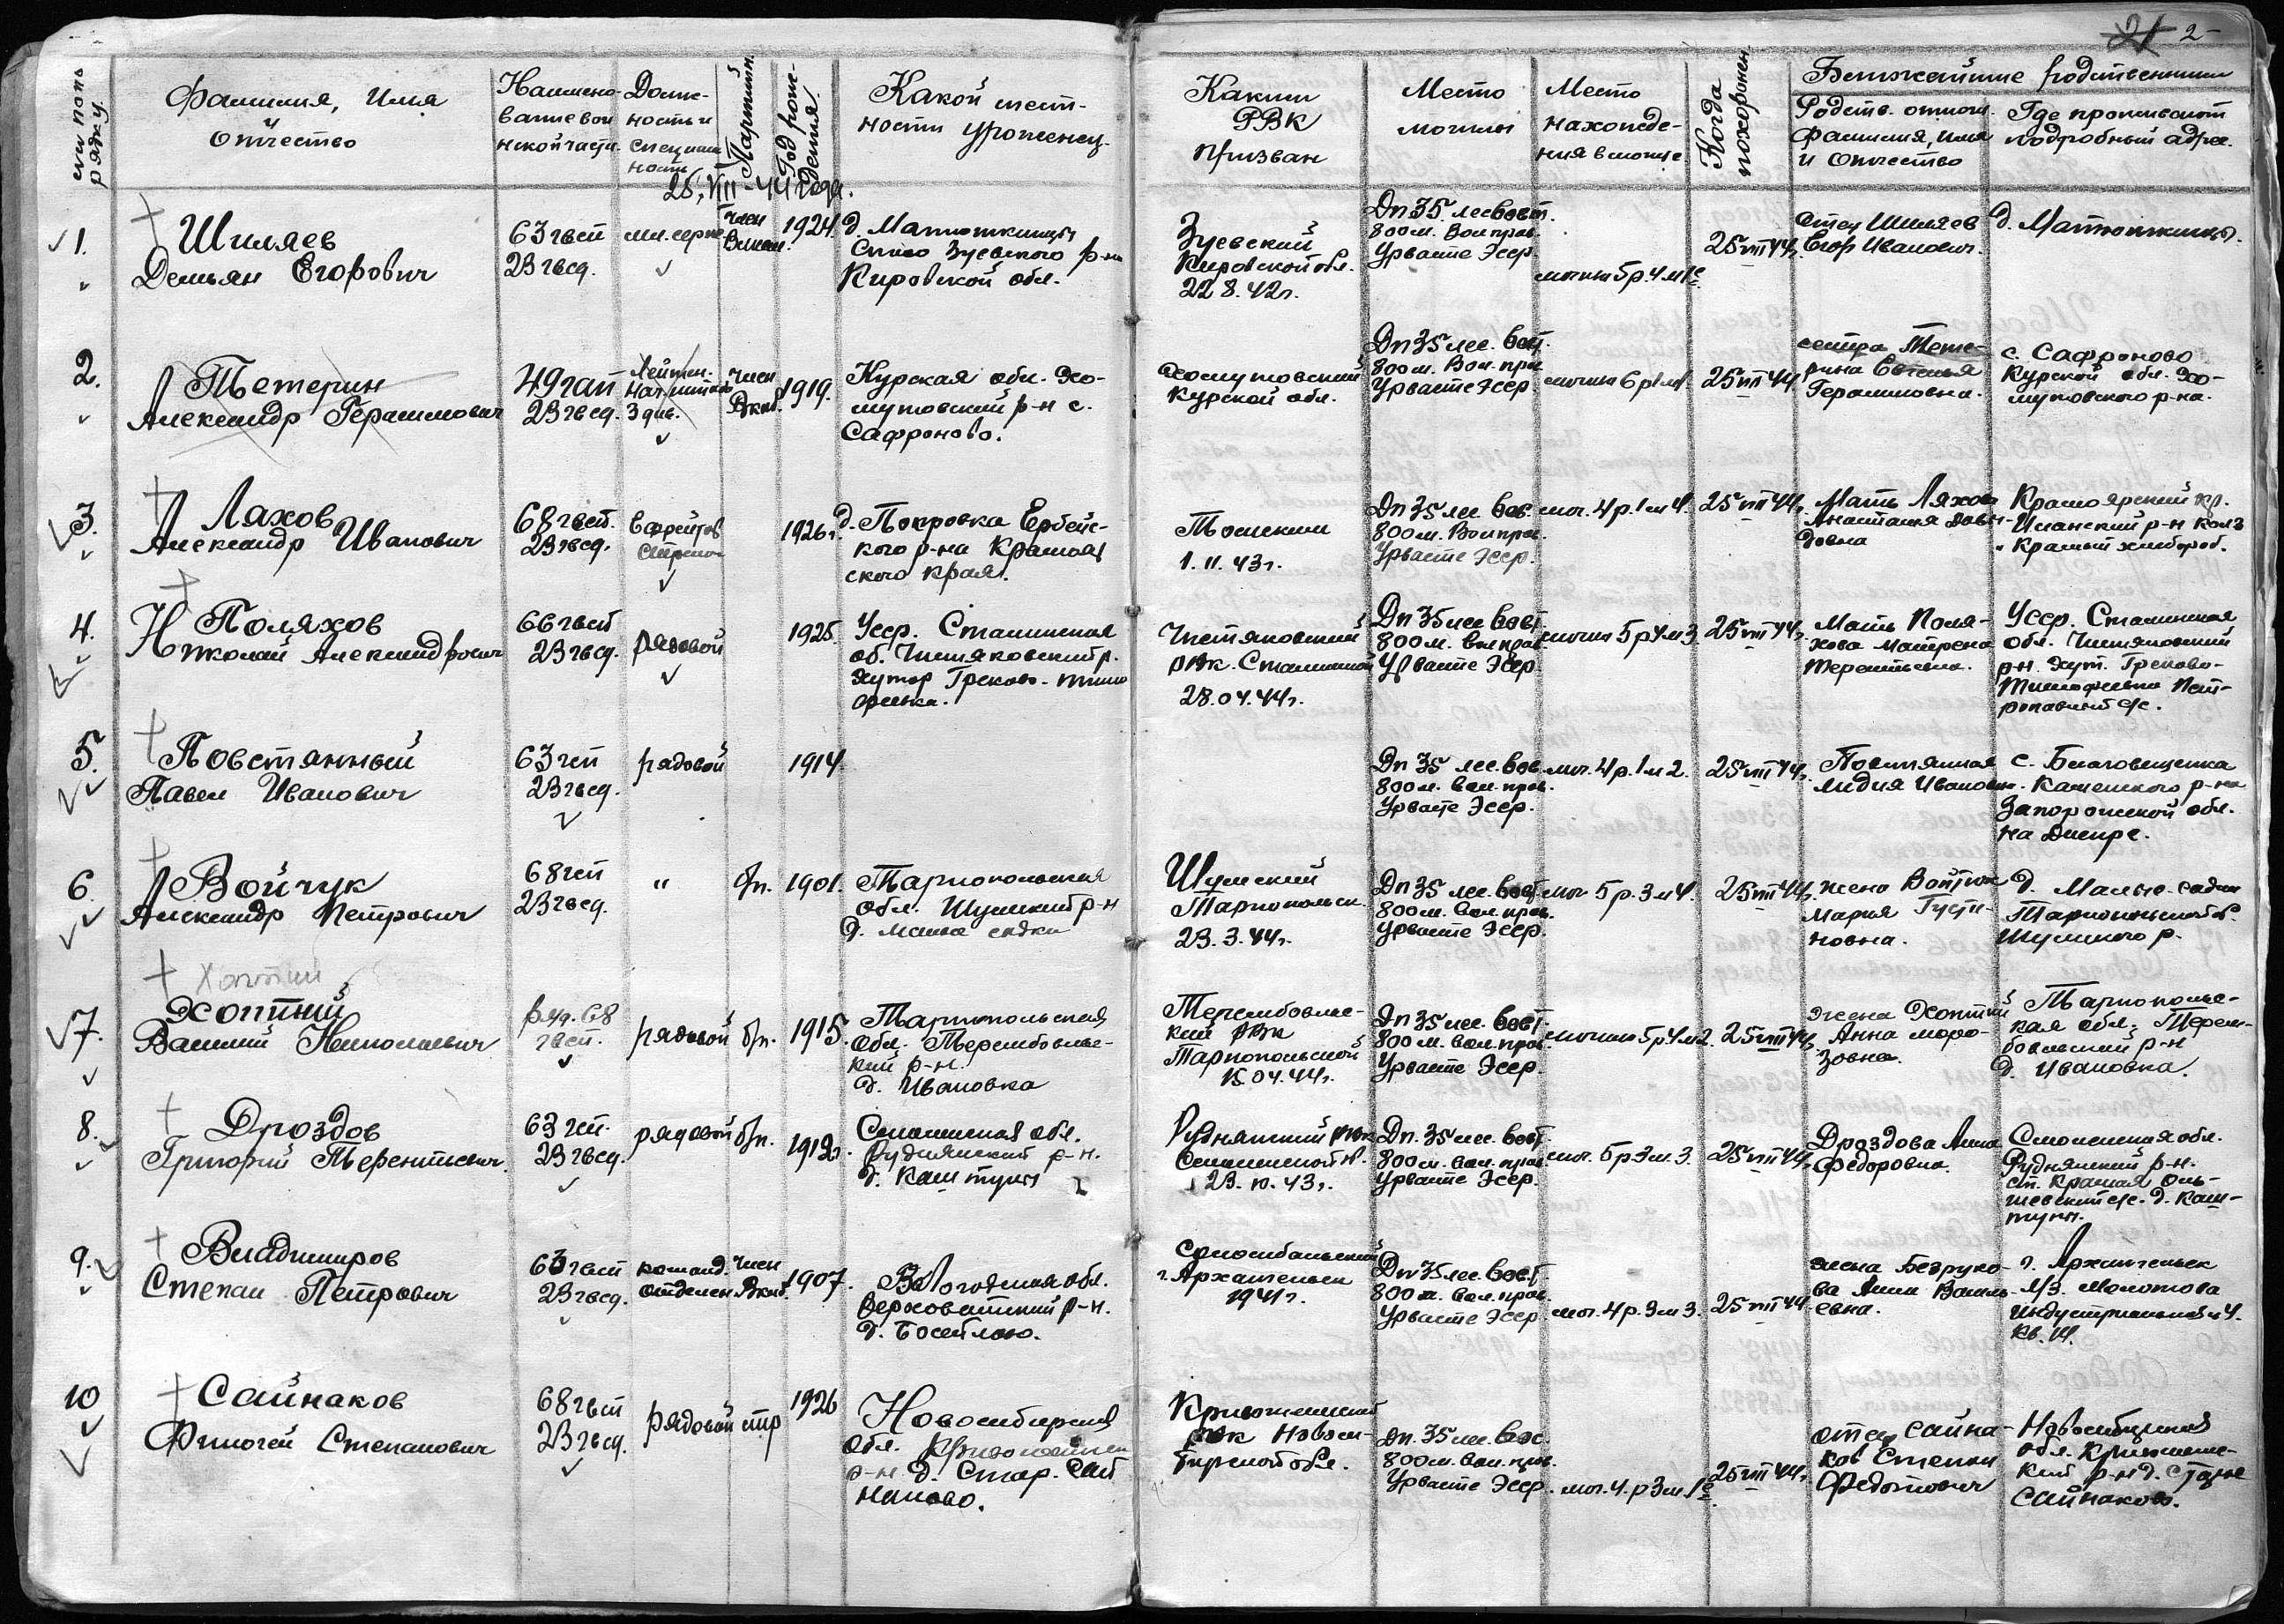 21 2-
№№ по порядку.
Фамилия, Имя
и
Отчество
Наимено-
вание вои
нской части.
Долж-
ность и
специаль
ность
Партийн.
Год рож-
дения.
Какой мест-
ности уроженец.
Каким
РВК
призван
Место
могилы
Место
нахожде-
ния в могиле
Когда
похоронен
Ближайшие родственники
Родств. отнош.
фамилия, имя
и отчество
Где проживают
подробный адрес.
25.VIII-44 года.
1.
Шиляев
Демьян Егорович
63 гвсп
23 гвсд.
мл. серж.
член
1924.
д. Матюшкинцы
Зуевского р-на
Кировской обл.
Зуевский
Кировской обл.
22.8.42г.
Дп 35. лес вост.
800м. Вом прав.
Урвасте Эсср
могила 5 р. 4 м 1е
25 VIII 44г.
отец Шиляев
Егор Иванович.
д. Матюшкинцы.
2.
Тетерин
Александр Герасимович
49 гап
23 гвсд.
Лейтен.
Нач. штаба
3 див.
член
Вкпб.
1919.
Курская обл. Хо-
мутовский р-н с.
Сафроново.
Хомутовский
Курской обл.
Дп 35 лес. вост.
800м. Вом прав
Урвасте Эсср.
могила 6 р1м1.
25 VIII 44
сестра Тете-
рина Евгенья
Герасимовна.
с. Сафроново
Курской обл. Хо-
мутовского р-на.
3.
Ляхов
Александр Иванович
68 гвсп.
23 гвсд.
Ефрейтор
1926г.
д. Покровка Ербейс-
кого р-на Краснояр
ского края.
1.11.43г.
Дп 35 лес вос.
800м. Вом прав.
Урвасте Эсср.
мог. 4 р. 1 м 4.
25 VIII 44г.
Мать Ляхова
Анастасия Давы-
довна
Красноярский кр.
р-н колз
„Красный хлебороб.
4.
Поляхов
Николай Александрович
66 гвсп
23 гвсд.
рядовой
1925.
Усср. Сталинская
об. Чистяковский р.
хутор Греково-Тимо
феевка.
Чистяковский
рвк. Сталинской
28.04.44г.
Дп 35 лес вост.
800м. вом прав.
Урвасте Эсср
могила 5 р 4 м 3
25 VIII 44г.
Мать Поля-
хова Матрена
Терентьевна.
Усср. Сталинская
обл. Чистяковский
р-н. хут. Греково-
Тимофеевка Пет-
ропавлий с/с.
5.
Повстянный
Павел Иванович
63 гсп
23 гвсд.
рядовой
1914.
Дп 35 лес. вов.
800м. вом. прав.
Урвасте Эсср.
мог. 4 р. 1 м 2.
25 VIII 44г.
Повстянная
Лидия Ивановн.
с. Благовещенка
Каменского р-на
Запорожской обл.
на Днепре.
6.
Войчук
Александр Петрович
68 гсп
23 гвсд.
„
б/п.
1901.
Тарнопольская
обл. Шумский р-н
д. Малые садки
Шумский
Тарнопольск.
23.3.44г.
Дп 35 лес. вост.
800м. вом. прав.
Урвасте Эсср.
мог 5 р. 3 м 4.
25 VIII 44г.
жена Войтюк
Мария Густи-
новна.
д. Малые-садки
Тарнопольской об.
Шумского р.
Хоптий
7.
Хоптий
Василий Николаевич
68
гвсп.
рядовой
б/п.
1915.
Тарнопольская
обл. Терембовльс-
кий р-н.
д. Ивановка
Терембовльс-
кий РВк
Тарнопольской
15.04.44г.
Дп 35 лес. вост.
800м. вом. прав.
Урвасте Эсср.
могила 5 р 4 м 2.
25 VIII 44г.
жена Хоптий
Анна Моро-
зовна.
Тарнопольс-
кая обл. Терем-
бовльский р-н
д. Ивановка.
8.
Дроздов
Григорий Терентьевич.
63 гсп.
23 гвсд.
рядовой
б/п.
Смоленская обл.
Руднянский р-н.
д. Каштуны
Руднянский рвк
Смоленской об.
23.10.43г.
Дп. 35 лес. вост.
800м. вом. прав.
Урвасте Эсср.
мог. 5 р 3 м. 3.
25 VIII 44г.
Дроздова Анна
Федоровна.
Смоленская обл.
Руднянский р-н.
с/с. д. Каш-
туны.
9.
Владимиров
Степан Петрович
63 гвсп
23 гвсд.
команд.
отделен.
член
Вкпб.
1907.
Вологодская обл.
Верховажский р-н.
г. Архангельск
1941г.
Дп 35 лес. вост.
800м. вом. прав.
Урвасте Эсср.
мог. 4 р. 3 м 3.
25 VIII 44
жена Безруко-
ва Анна Василь-
евна.
г. Архангельск
Молотова
Индустриальная 4.
10
Сайнаков
Филогей Степанович
68 гвсп
23 гвсд.
рядовой
1926
Новосибирская
обл. Кривошеинск
р-н д. Стар. Сай
наково.
Кривошеинский
рвк Новоси-
бирской обл.
Дп. 35 лес. вос.
800м. вом. прав.
Урвасте Эсср.
мог. 4. р 3 м 1е
25 VIII 44г.
отец Сайна-
ков Степан
Федотович
Новосибирская
обл. Кривошеинс-
кий р-н д. Стар
Сайнаково.